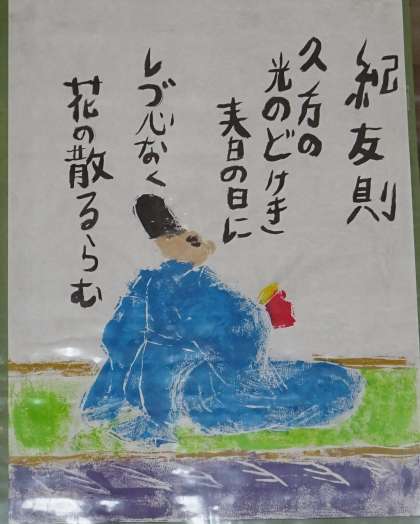 紀友則
久方の
光のどけき
春の日に
しづ心なく
花の散るらむ